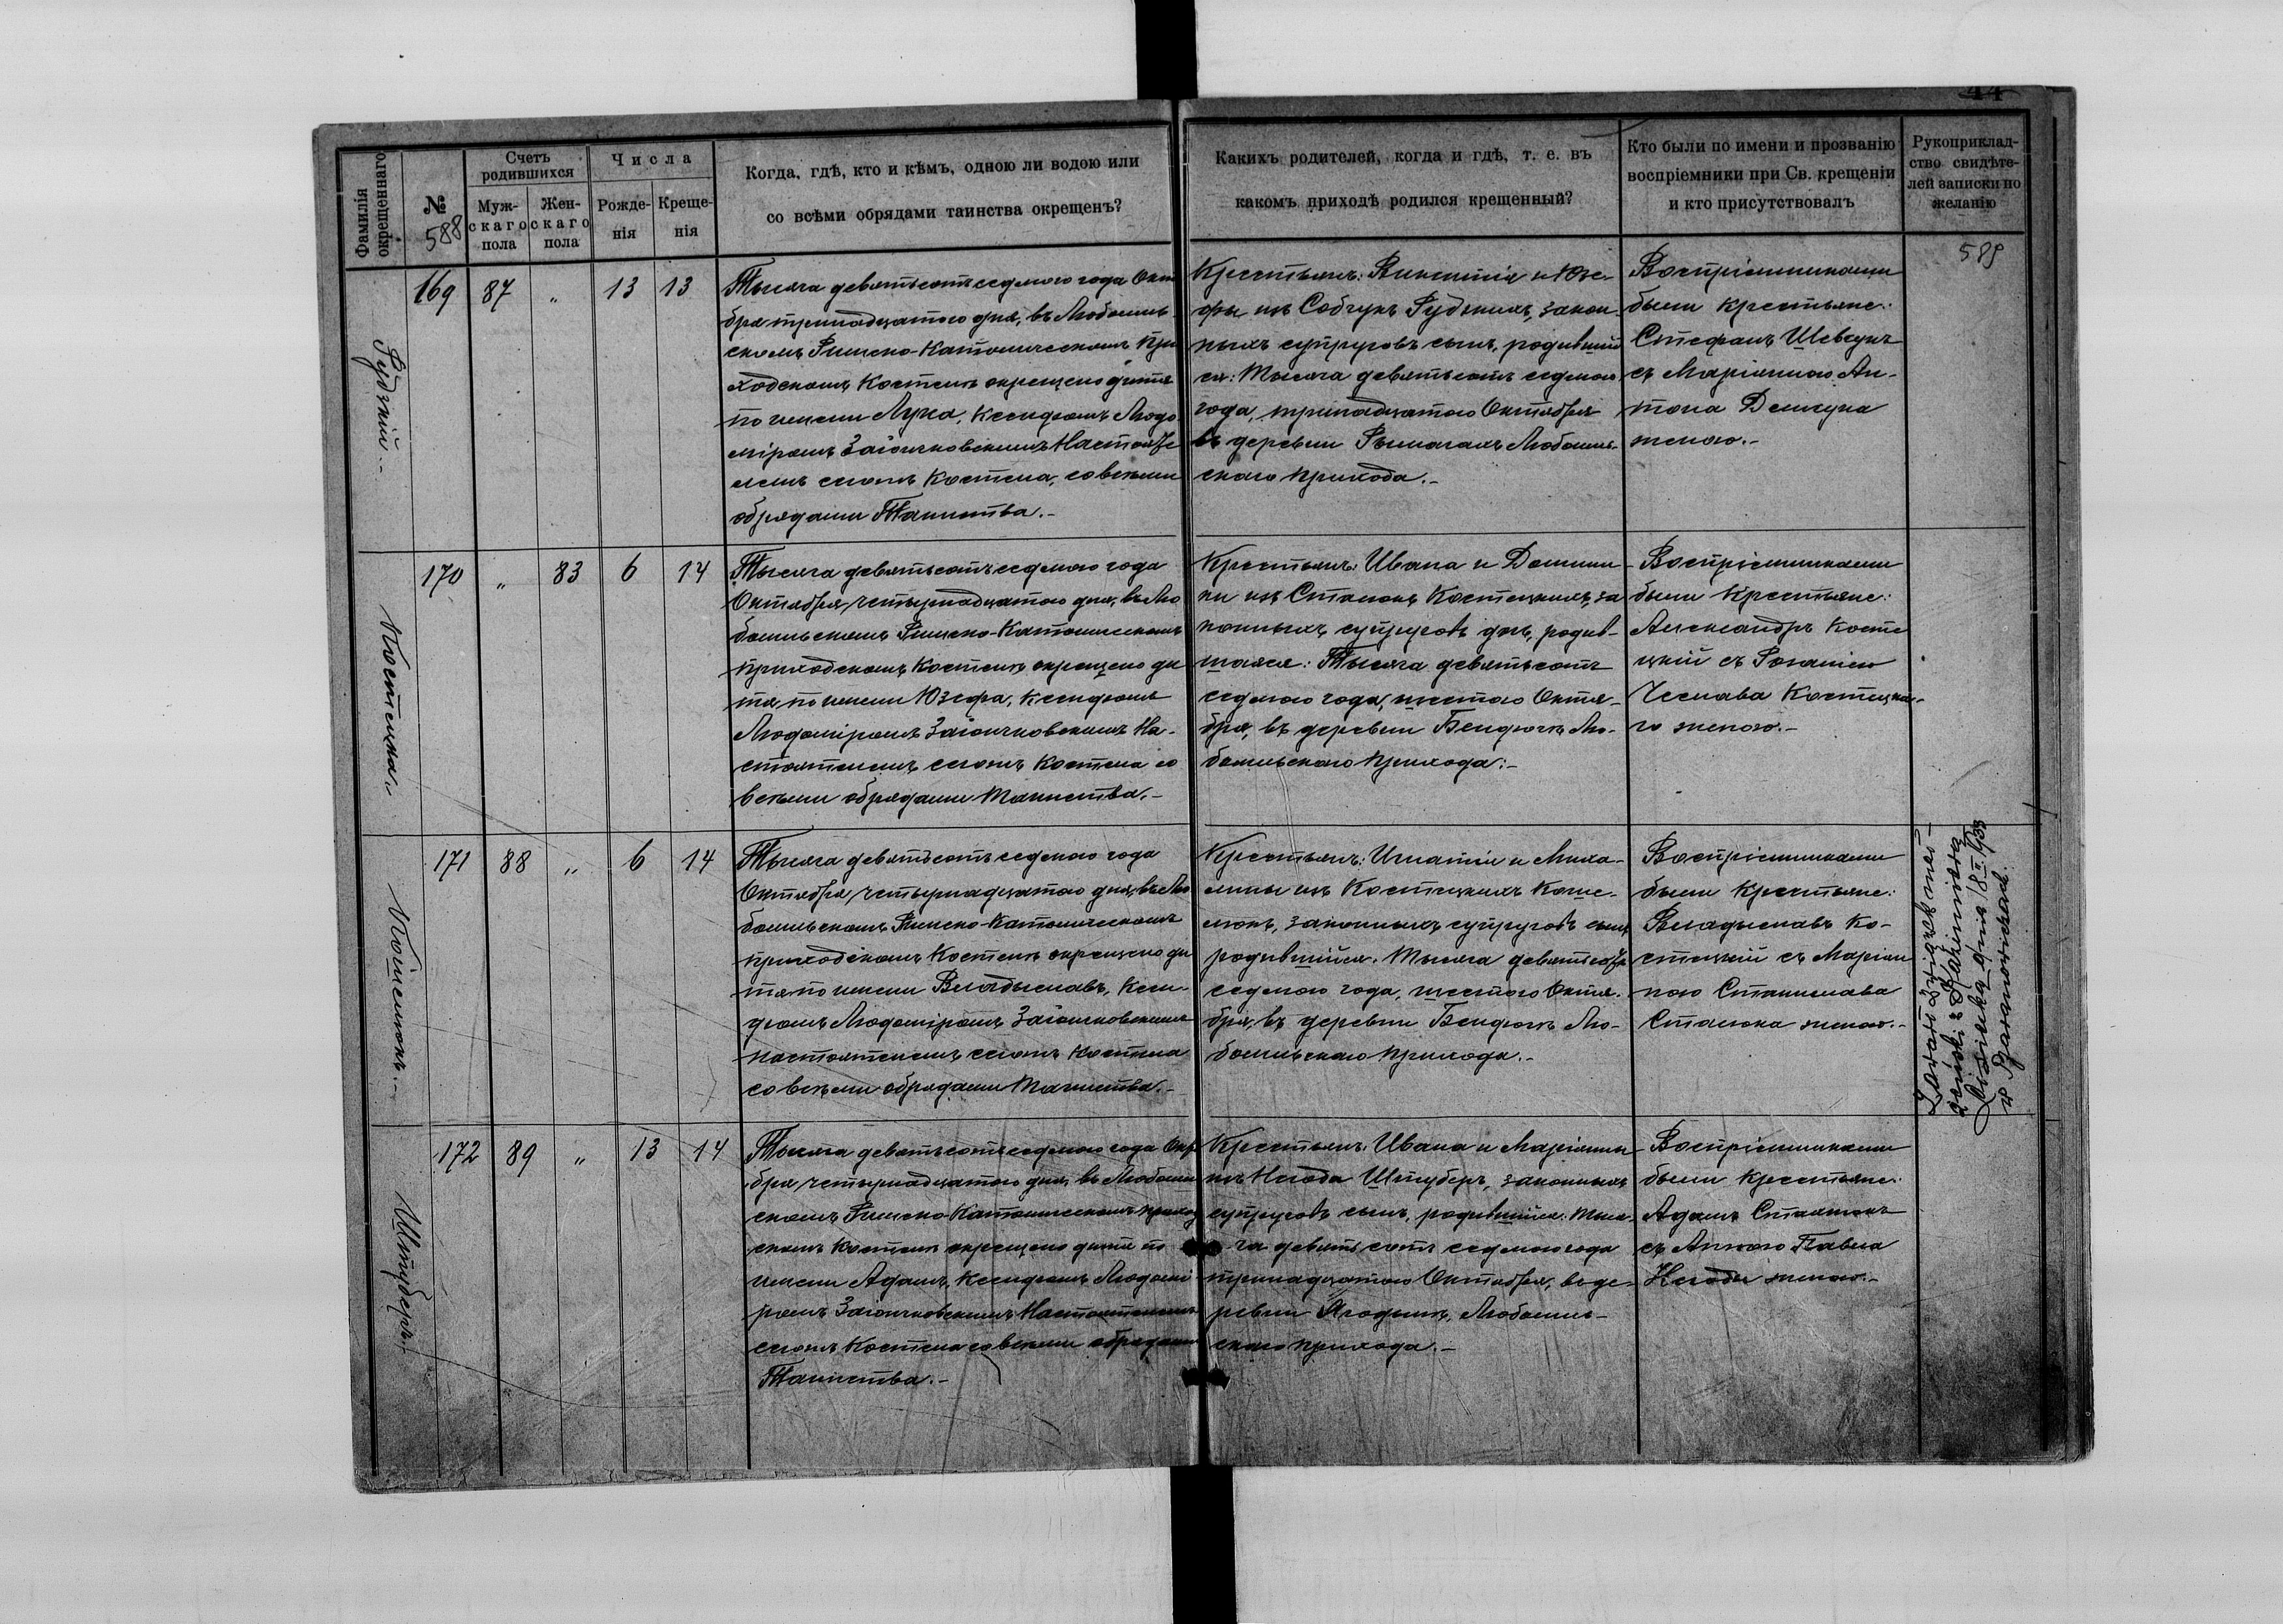 44
Фамилія
окрещеннаго
№
588
Счетъ
родившихся
Муж-
скаго
пола
Жен-
скаго
пола
Числа
Рожде-
нія
Креще-
нія
Когда, гдѣ, кто и кѣмъ, одною ли водою или
со всѣми обрядами таинства окрещенъ?
Какихъ родителей, когда и гдѣ, т. е. въ
какомъ приходѣ родился крещенный?
Кто были по имени и прозванію
воспріемники при Св. крещеніи
и кто присутствовалъ
Рукоприклад-
ство свидѣте-
лей записки по
желанію
589
Рудзкій.-
169
87
"
13
13
Тысяча девятьсотъ седмого года Октя
бря тринадцатого дня, въ Любомль
скомъ Римско-Католическомъ при
ходскомъ Костелѣ окрещено дитя
по имени Лука, Ксендзомъ Людо
міромъ Заіончковскимъ Настояте
лемъ сего Костела, со всѣми
обрядами Таинства.-
Крестьянъ: Викентія и Юзе-
фы изъ Собчукъ Рудзкихъ, закон-
ныхъ супруговъ сынъ, родивший
ся: Тысяча девятьсотъ седмого
года, тринадцатого Октября
въ деревни Рымачахъ Любомль-
скаго прихода.-
Воспріемниками
были крестьяне:
Стефанъ Шевчукъ
съ Маріанною Ан-
тона Демчука
женою.-
170
"
83
6
14
Тысяча девятьсотъ седмого года
Октября четырнадцатого дня, въ Лю
бомльскомъ Римско-Католическомъ
приходскомъ Костелѣ окрещено ди
тя, по имени Юзефа, Ксендзомъ
Людоміромъ Заіончковскимъ На-
стоятелемъ сего Костела со
всѣми обрядами Таинства.-
Крестьянъ: Ивана и Домини
ки изъ Стасюкъ Костецкихъ, за
конныхъ супруговъ дочь, родив-
шаяся: Тысяча девятьсотъ
седмого года, шестого Октя-
бря, въ деревни Бендюгѣ Лю-
бомльскаго прихода.-
Воспріемниками
были крестьяне:
Александръ Косте
цкій съ Розаліею
Чеслава Костецка-
го женою.-
171
88
"
6
14
Тысяча девятьсотъ седмого года
Октября четырнадцатого дня, въ Лю
бомльскомъ Римско-Католическомъ
приходскомъ Костелѣ окрещено ди
тя по имени Владыславъ, Ксен-
дзомъ Людоміромъ Заіончковскимъ
настоятелемъ сего Костела
со всѣми обрядами Таинства.-
Крестьянъ: Игнатія и Миха-
лины изъ Костецкихъ Коше-
люкъ, законныхъ супруговъ сынъ
родившийся. Тысяча девятьсотъ
седмого года, шестого Октя-
бря, въ деревни Бендюгѣ Лю-
бомльскаго прихода.-
Воспріемниками
были крестьяне:
Владыславъ Ко-
стецкій съ Маріан
ною Станислава
Стасюка женою.-
Кошелюкъ.-
Zawarł związek mał-
żeński z
dnia 18 II 1933
w
172
89
"
13
14
Тысяча девятьсотъ седмого года Октя
бря четырнадцатого дня, въ Любомль
скомъ Римско-Католическомъ приход
скомъ Костелѣ окрещено дитя по
имени Адамъ, Ксендзомъ Людомі
ромъ Заіончковскимъ Настоятелемъ
сего Костела со всѣми обрядами
Таинства.-
Крестьянъ: Ивана и Маріанны
изъ Негода Штуберъ, законныхъ
супруговъ сынъ, родившийся: Тыся-
ча девятьсотъ седмого года
тринадцатого Октября, въ де-
ревни Ягодинѣ, Любомль-
скаго прихода.-
Воспріемниками
были крестьяне:
Адамъ
съ Анною Павла
Негоды женою.-
Штуберъ.-